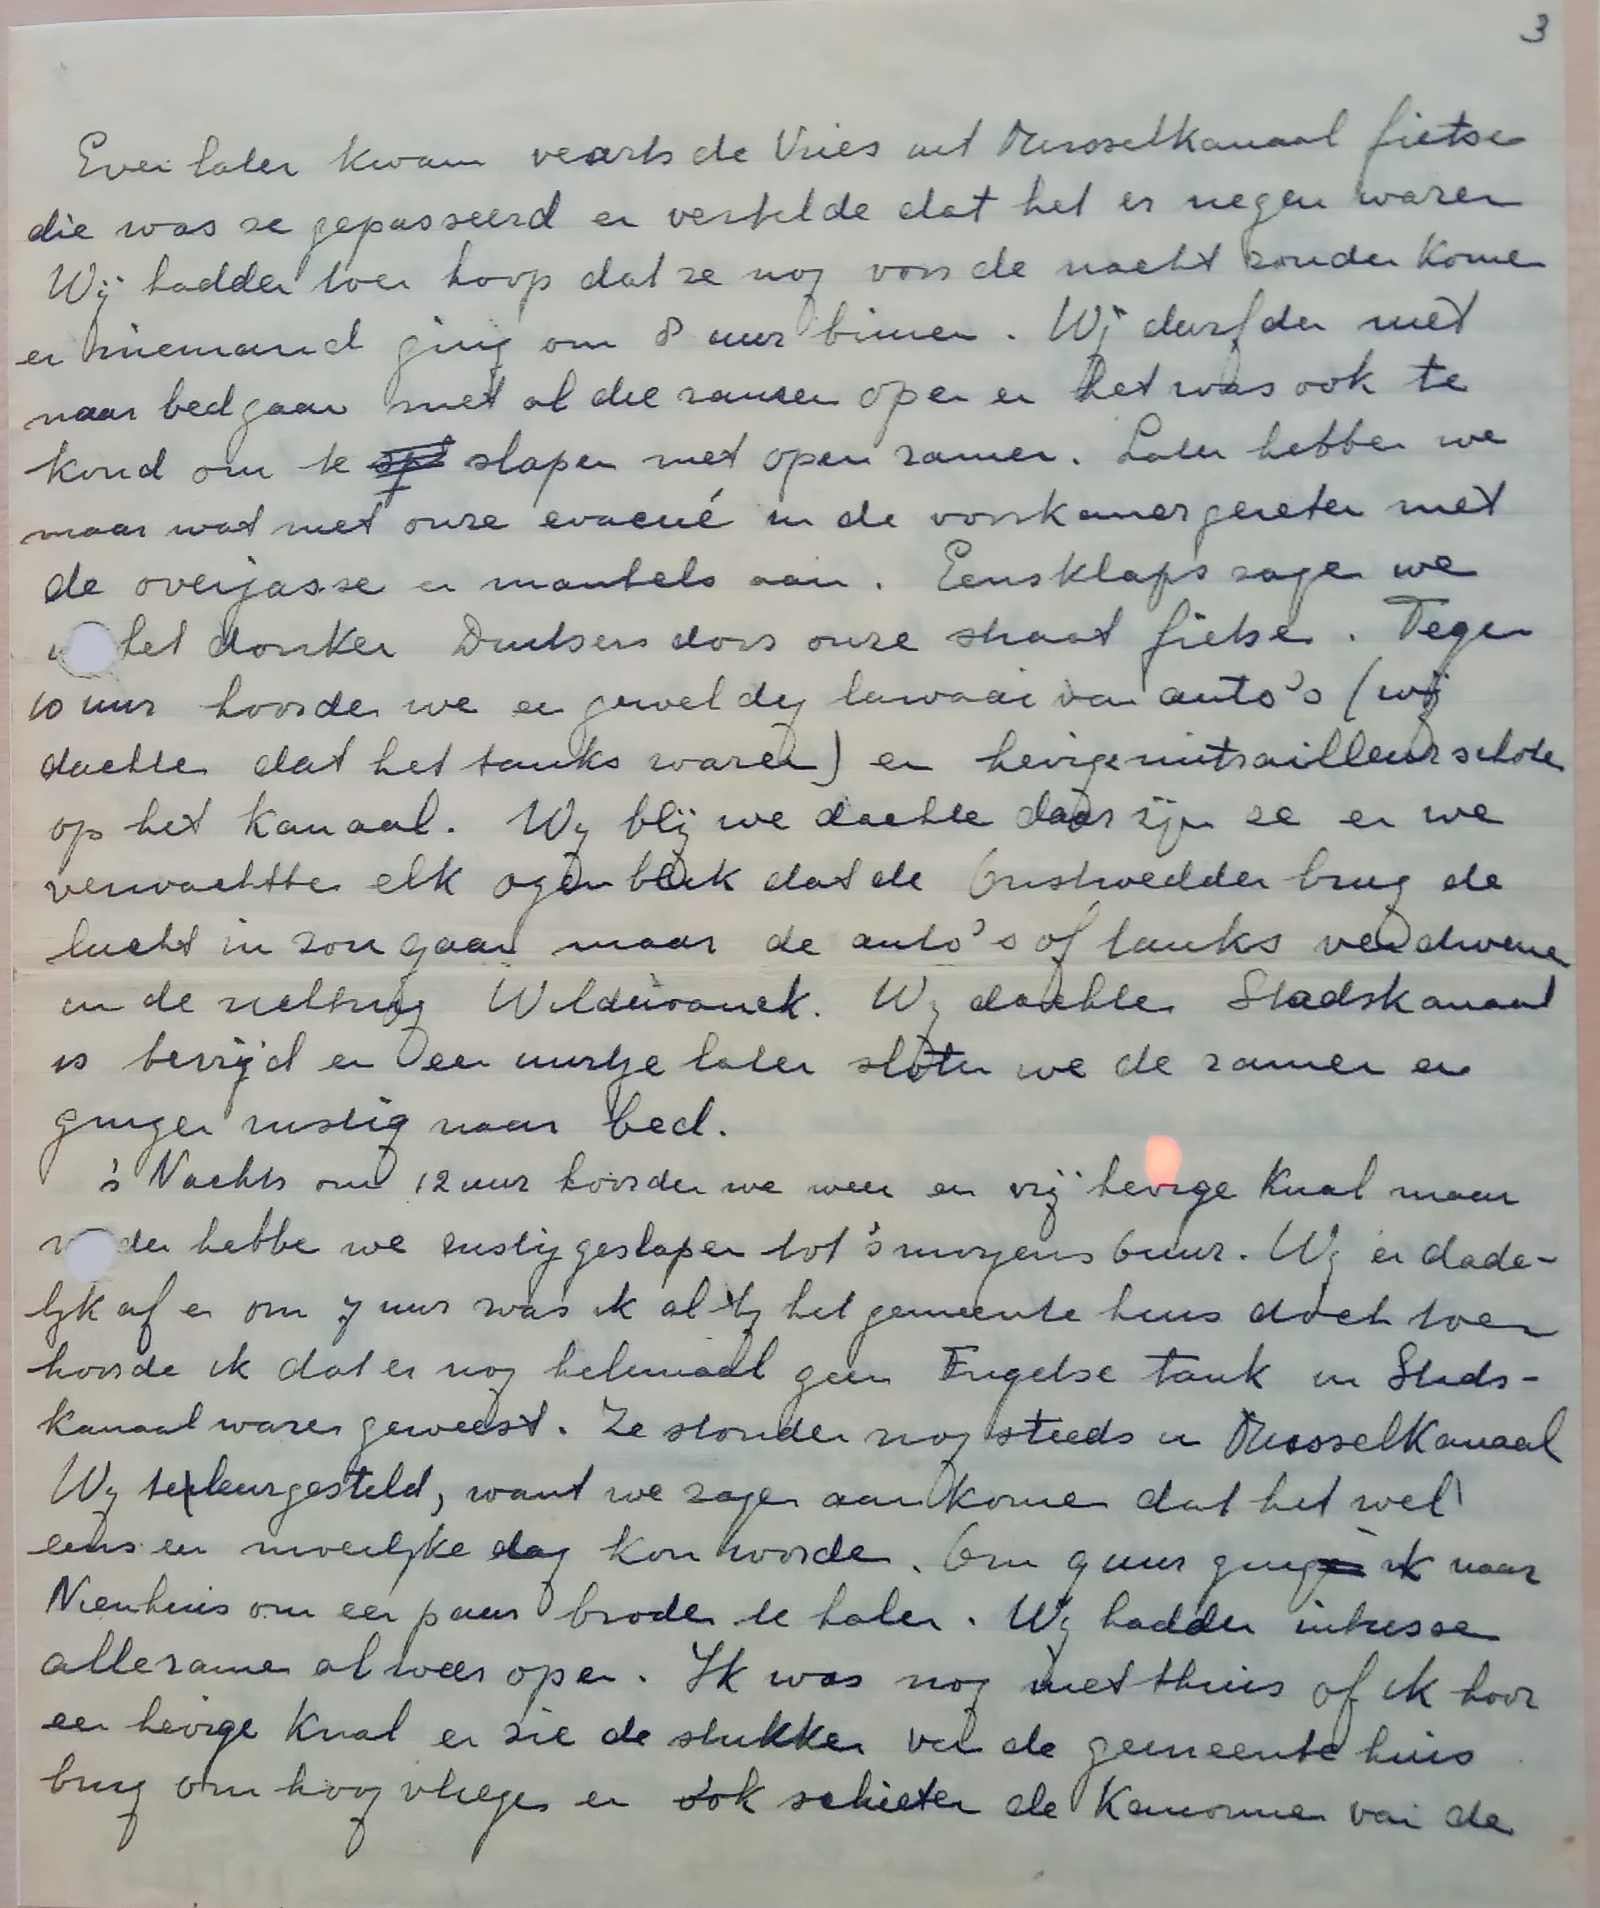 3
Even later kwam veearts de Vries uit Musselkanaal fietse
die was ze gepasseerd en vertelde dat het er negen waren
Wij hadden toen hoop dat ze nog voor de nacht zouden komen
en niemand ging om 8 uur binnen. Wij durfden niet
naar bed gaan met al die ramen open en het was ook te
koud om te slapen met open ramen. Later hebben we
maar wat met onze evacué in de voorkamer gezeten met
de overjasse en mantels aan. Eensklaps zagen we
het donker Duitsers door onze straat fietsen. Tegen
10 uur hoorden we een geweldig lawaai van auto's (wij
dachten dat het tanks waren) en hevige mitrailleur schoten
op het kanaal. Wij blij we dachten daar zijn ze en we
verwachtten elk ogenblik dat de Onstwedder brug de
lucht in zou gaan maar de auto's of tanks verdwenen
in de richting Wildervanck. Wij dachten Stadskanaal
is bevrijd en een uurtje later sloten we de ramen en
gingen rustig naar bed.
's Nachts om 12 uur hoorden we weer een vrij hevige knal maar
hebbe we rustig geslapen tot 's morgens 6 uur. Wij er dade-
lijk af en om 7 uur was ik al bij het gemeente huis doch toen
hoorde ik dat er nog helemaal geen Engelse tank in Stads-
kanaal waren geweest. Ze stonden nog steeds in Musselkanaal
Wij teleurgesteld, want we zagen aankomen dat het wel
eens een moeilijke dag kon worden. Om 9 uur ging ik naar
Nienhuis om een paar broden te halen. Wij hadden intusse
alle ramen al weer open. Ik was nog niet thuis of ik hoor
een hevige knal en zie de stukken van de gemeente huis
brug omhoog vliegen en ook schieten de kanonnen van de